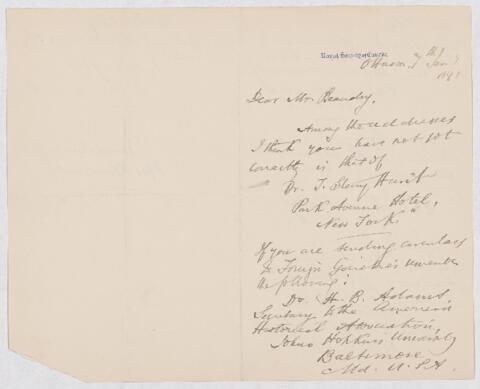 Royal Society of Canada
Ottawa, 7th Jan'y
1891
Dear Mr. Beaudry,
Among the addresses
I think you have not got
correctly is that of
"Dr. T. Sterry Hunt
Park Avenue Hotel,
New York."
If you are sending circulars
to Foreign Societies remember
the following:
Dr. H. B. Adams,
Secretary to the American
Historical Association,
Johns Hopkins University
Baltimore
Md. U.S.A.